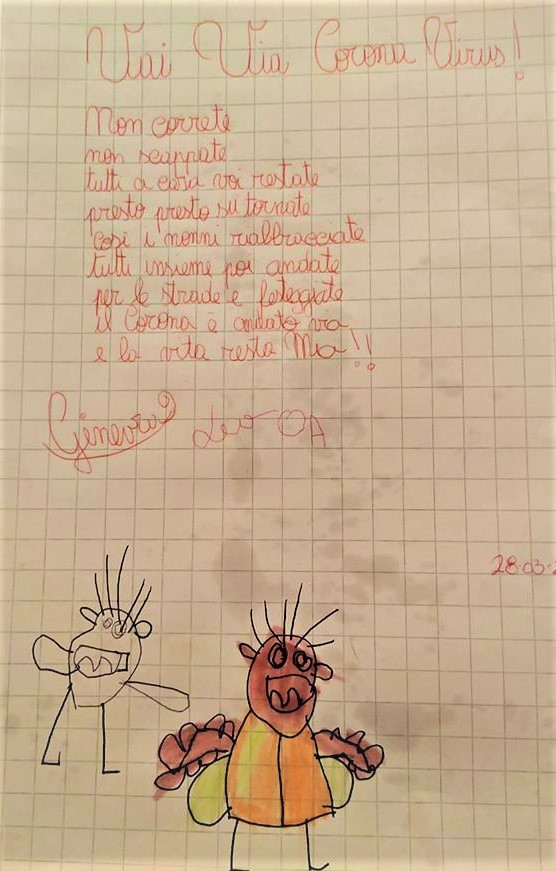 Vai Via Corona Virus!
Non correte
non scappate
tutti a casa voi restate
presto presto su tornate
così i nonni riabbracciate
tutti insieme poi andate
per le strade e festeggiate
il Corona è andato via
e la vita resta Mia!!
Ginevra
28-03-2